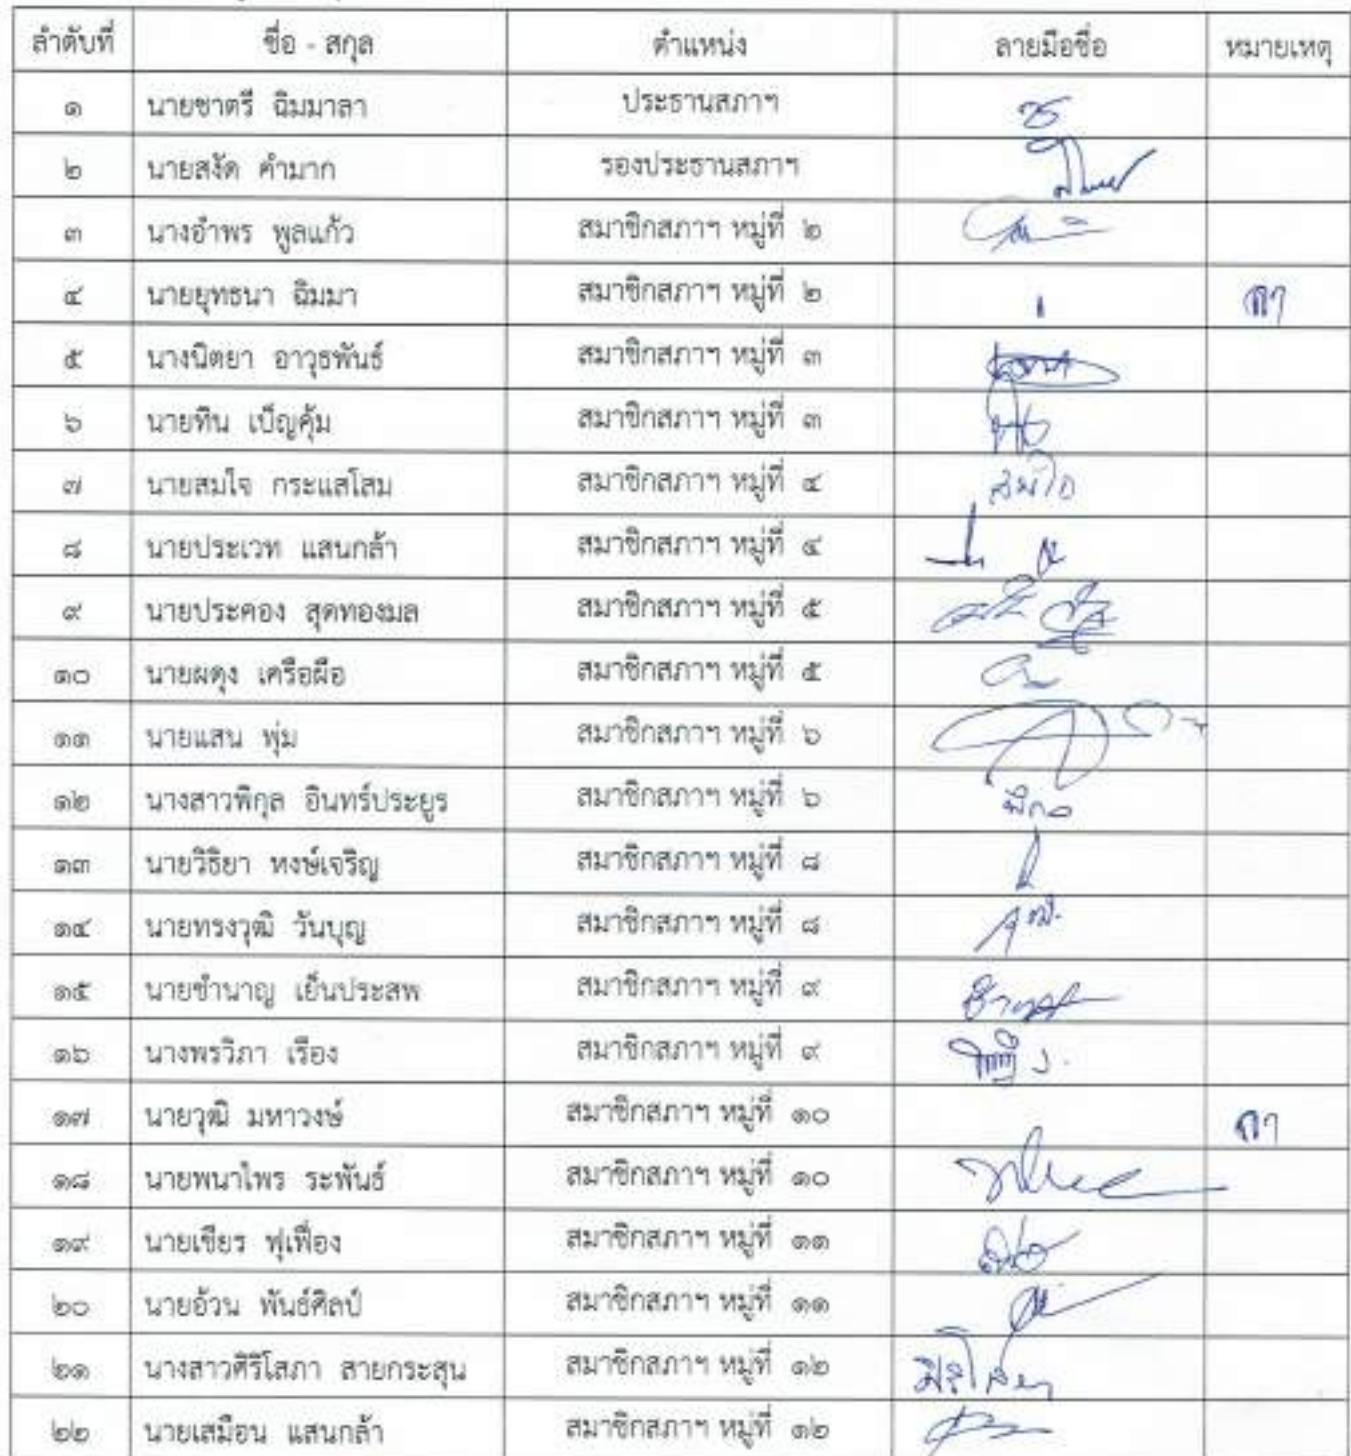 ลำดับที่ ชื่อ - สกุล ตำแหน่ง ลายมือชื่อ หมายเหตุ
๑ นายชาตรี ฉิมมาลา ประธานสภาฯ
๒ นายสงัด คำมาก รองประธานสภาฯ
๓ นางอำพร พูลแก้ว สมาชิกสภาฯ หมู่ที่ ๒
๔ นายยุทธนา ฉิมมา สมาชิกสภาฯ หมู่ที่ ๒ ลา
๕ นางนิตยา อาวุธพันธ์ สมาชิกสภาฯ หมู่ที่ ๓
๖ นายทิน เบ็ญคุ้ม สมาชิกสภาฯ หมู่ที่ ๓
๗ นายสมใจ กระแสโสม สมาชิกสภาฯ หมู่ที่ ๔ สมใจ
๘ นายประเวท แสนกล้า สมาชิกสภาฯ หมู่ที่ ๔
๙ นายประคอง สุดทองมล สมาชิกสภาฯ หมู่ที่ ๕
๑๐ นายผดุง เครือผือ สมาชิกสภาฯ หมู่ที่ ๕
๑๑ นายแสน พุ่ม สมาชิกสภาฯ หมู่ที่ ๖
๑๒ นางสาวพิกุล อินทร์ประยูร สมาชิกสภาฯ หมู่ที่ ๖
๑๓ นายวิธิยา หงษ์เจริญ สมาชิกสภาฯ หมู่ที่ ๘
๑๔ นายทรงวุฒิ วันบุญ สมาชิกสภาฯ หมู่ที่ ๘
๑๕ นายชำนาญ เย็นประสพ สมาชิกสภาฯ หมู่ที่ ๙
๑๖ นางพรวิภา เรือง สมาชิกสภาฯ หมู่ที่ ๙
๑๗ นายวุฒิ มหาวงษ์ สมาชิกสภาฯ หมู่ที่ ๑๐ ลา
๑๘ นายพนาไพร ระพันธ์ สมาชิกสภาฯ หมู่ที่ ๑๐
๑๙ นายเชียร ฟุเฟื่อง สมาชิกสภาฯ หมู่ที่ ๑๑
๒๐ นายอ้วน พันธ์ศิลป์ สมาชิกสภาฯ หมู่ที่ ๑๑
๒๑ นางสาวศิริโสภา สายกระสุน สมาชิกสภาฯ หมู่ที่ ๑๒
๒๒ นายเสมือน แสนกล้า สมาชิกสภาฯ หมู่ที่ ๑๒